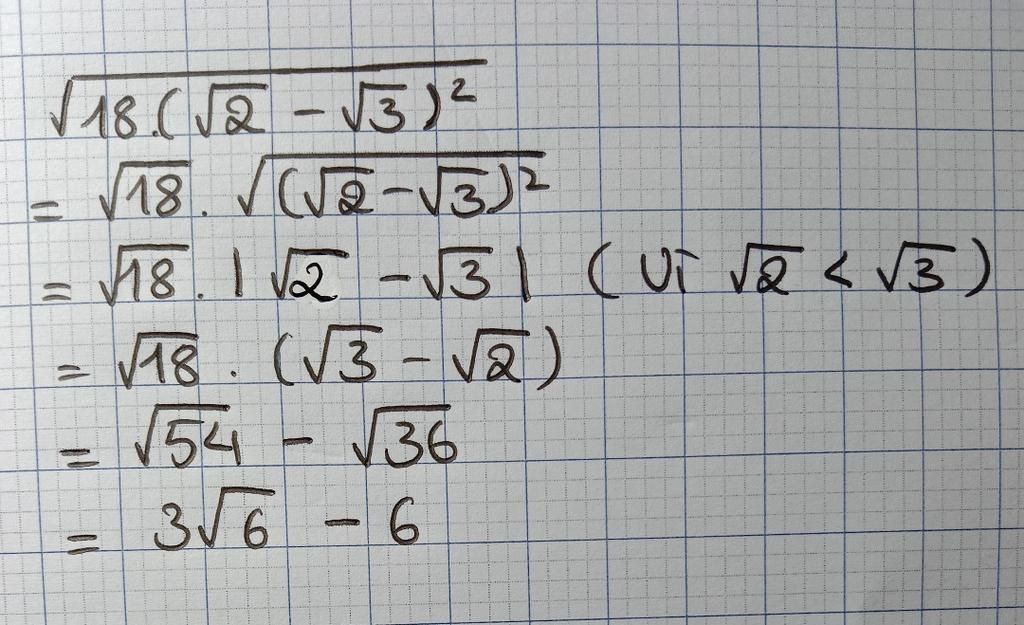 √18.(√2 - √3)²
= √18 . √(√2 - √3)²
= √18 . |√2 - √3| (Vì √2 < √3)
= √18 . (√3 - √2)
= √54 - √36
= 3√6 - 6